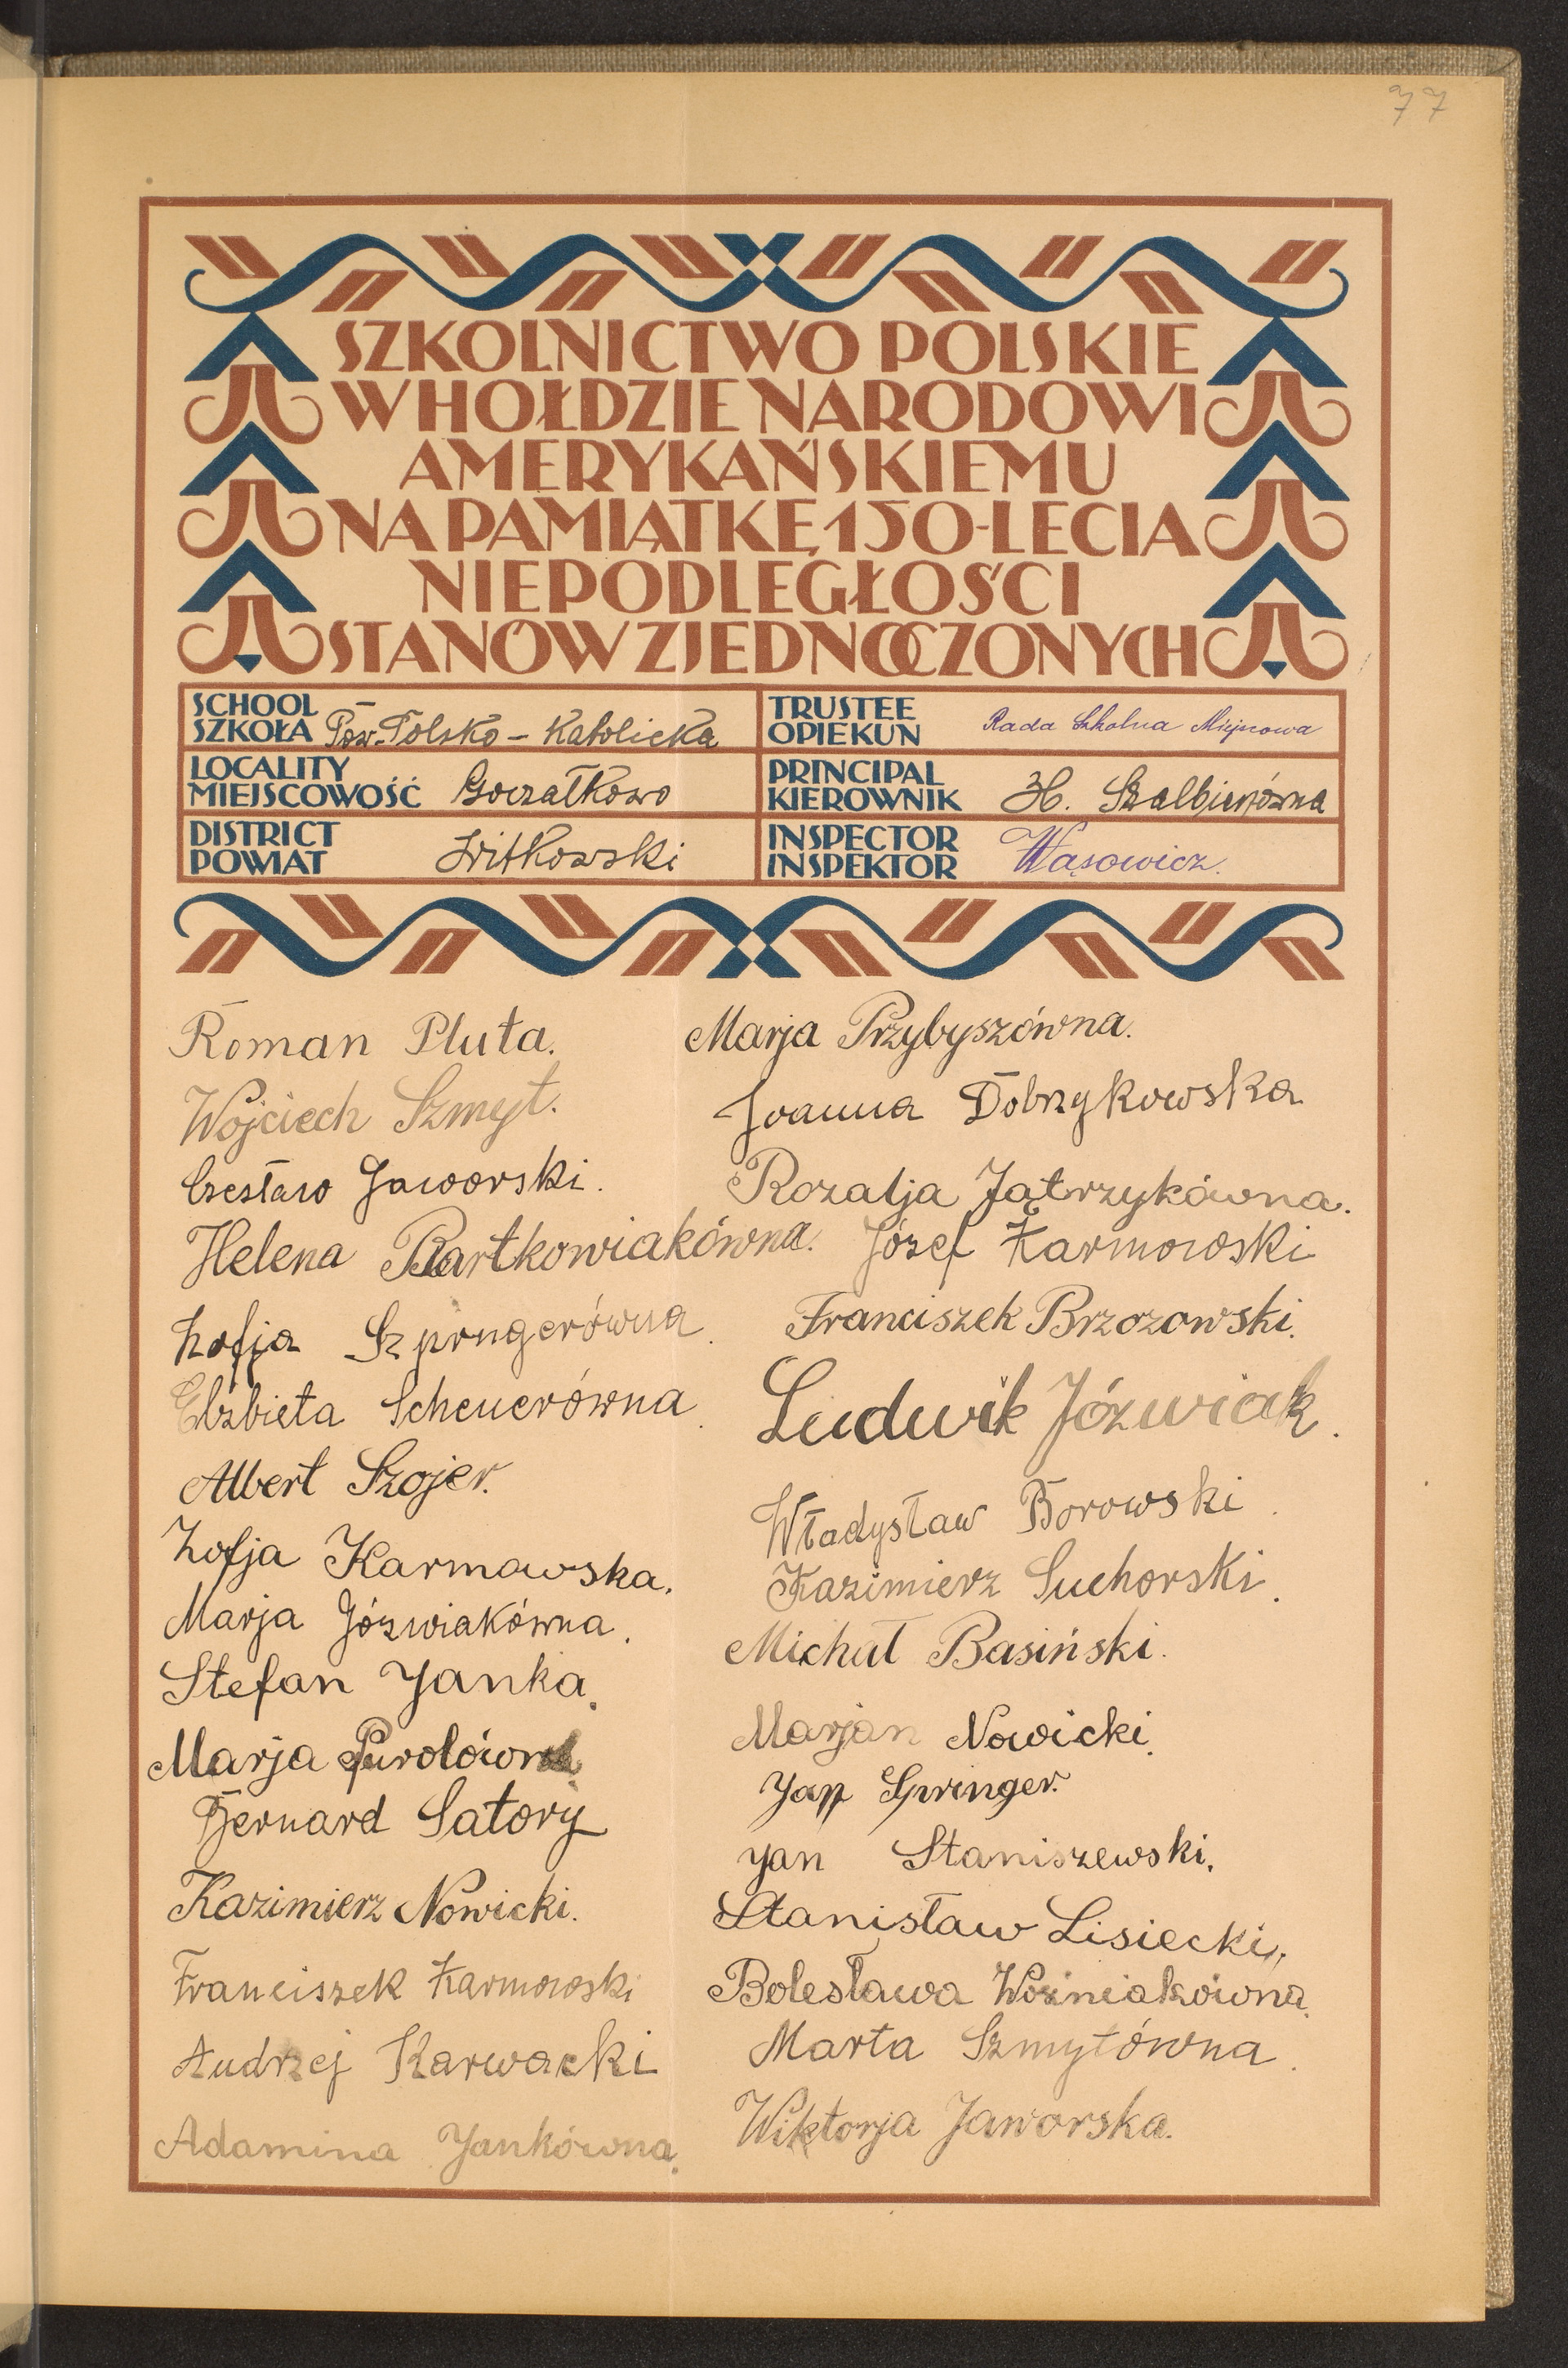 77
SZKOLNICTWO POLSKIE
W HOŁDZIE NARODOWI
AMERYKAŃSKIEMU
NA PAMIĄTKĘ 150-LECIA
NIEPODLEGŁOŚCI
STANÓW ZJEDNOCZONYCH
SCHOOL
SZKOŁA Pow. Polsko - Katolicka
LOCALITY
MIEJSCOWOŚĆ Gorzałkowo
DISTRICT
POWIAT Witkowski
TRUSTEE
OPIEKUN Rada Szkolna Miejscowa
PRINCIPAL
KIEROWNIK H. Szalbierzówna
INSPECTOR
INSPEKTOR Wąsowicz.
Roman Pluta.
Wojciech Szmyt.
Czesław Jaworski.
Helena Bartkowiakówna.
Zofja Szpringerówna.
Elżbieta Scheuerówna.
Albert Szojer.
Zofja Karmowska.
Marja Józwiakówna.
Stefan Janka.
Marja
Bernard Satory
Kazimierz Nowicki.
Franciszek Karmowski
Andrzej Karwacki
Adamina Jankówna.
Marja Przybyszówna.
Joanna Dobrzykowska
Rozalja Jątrzykówna.
Józef Karmowski
Franciszek Brzozowski.
Ludwik Józwiak.
Władysław Borowski.
Kazimierz Suchorski.
Michał Basiński.
Marjan Nowicki.
Jan Springer.
Jan Staniszewski.
Stanisław Lisiecki.
Bolesława Woźniakówna.
Marta Szmytówna.
Wiktorja Jaworska.